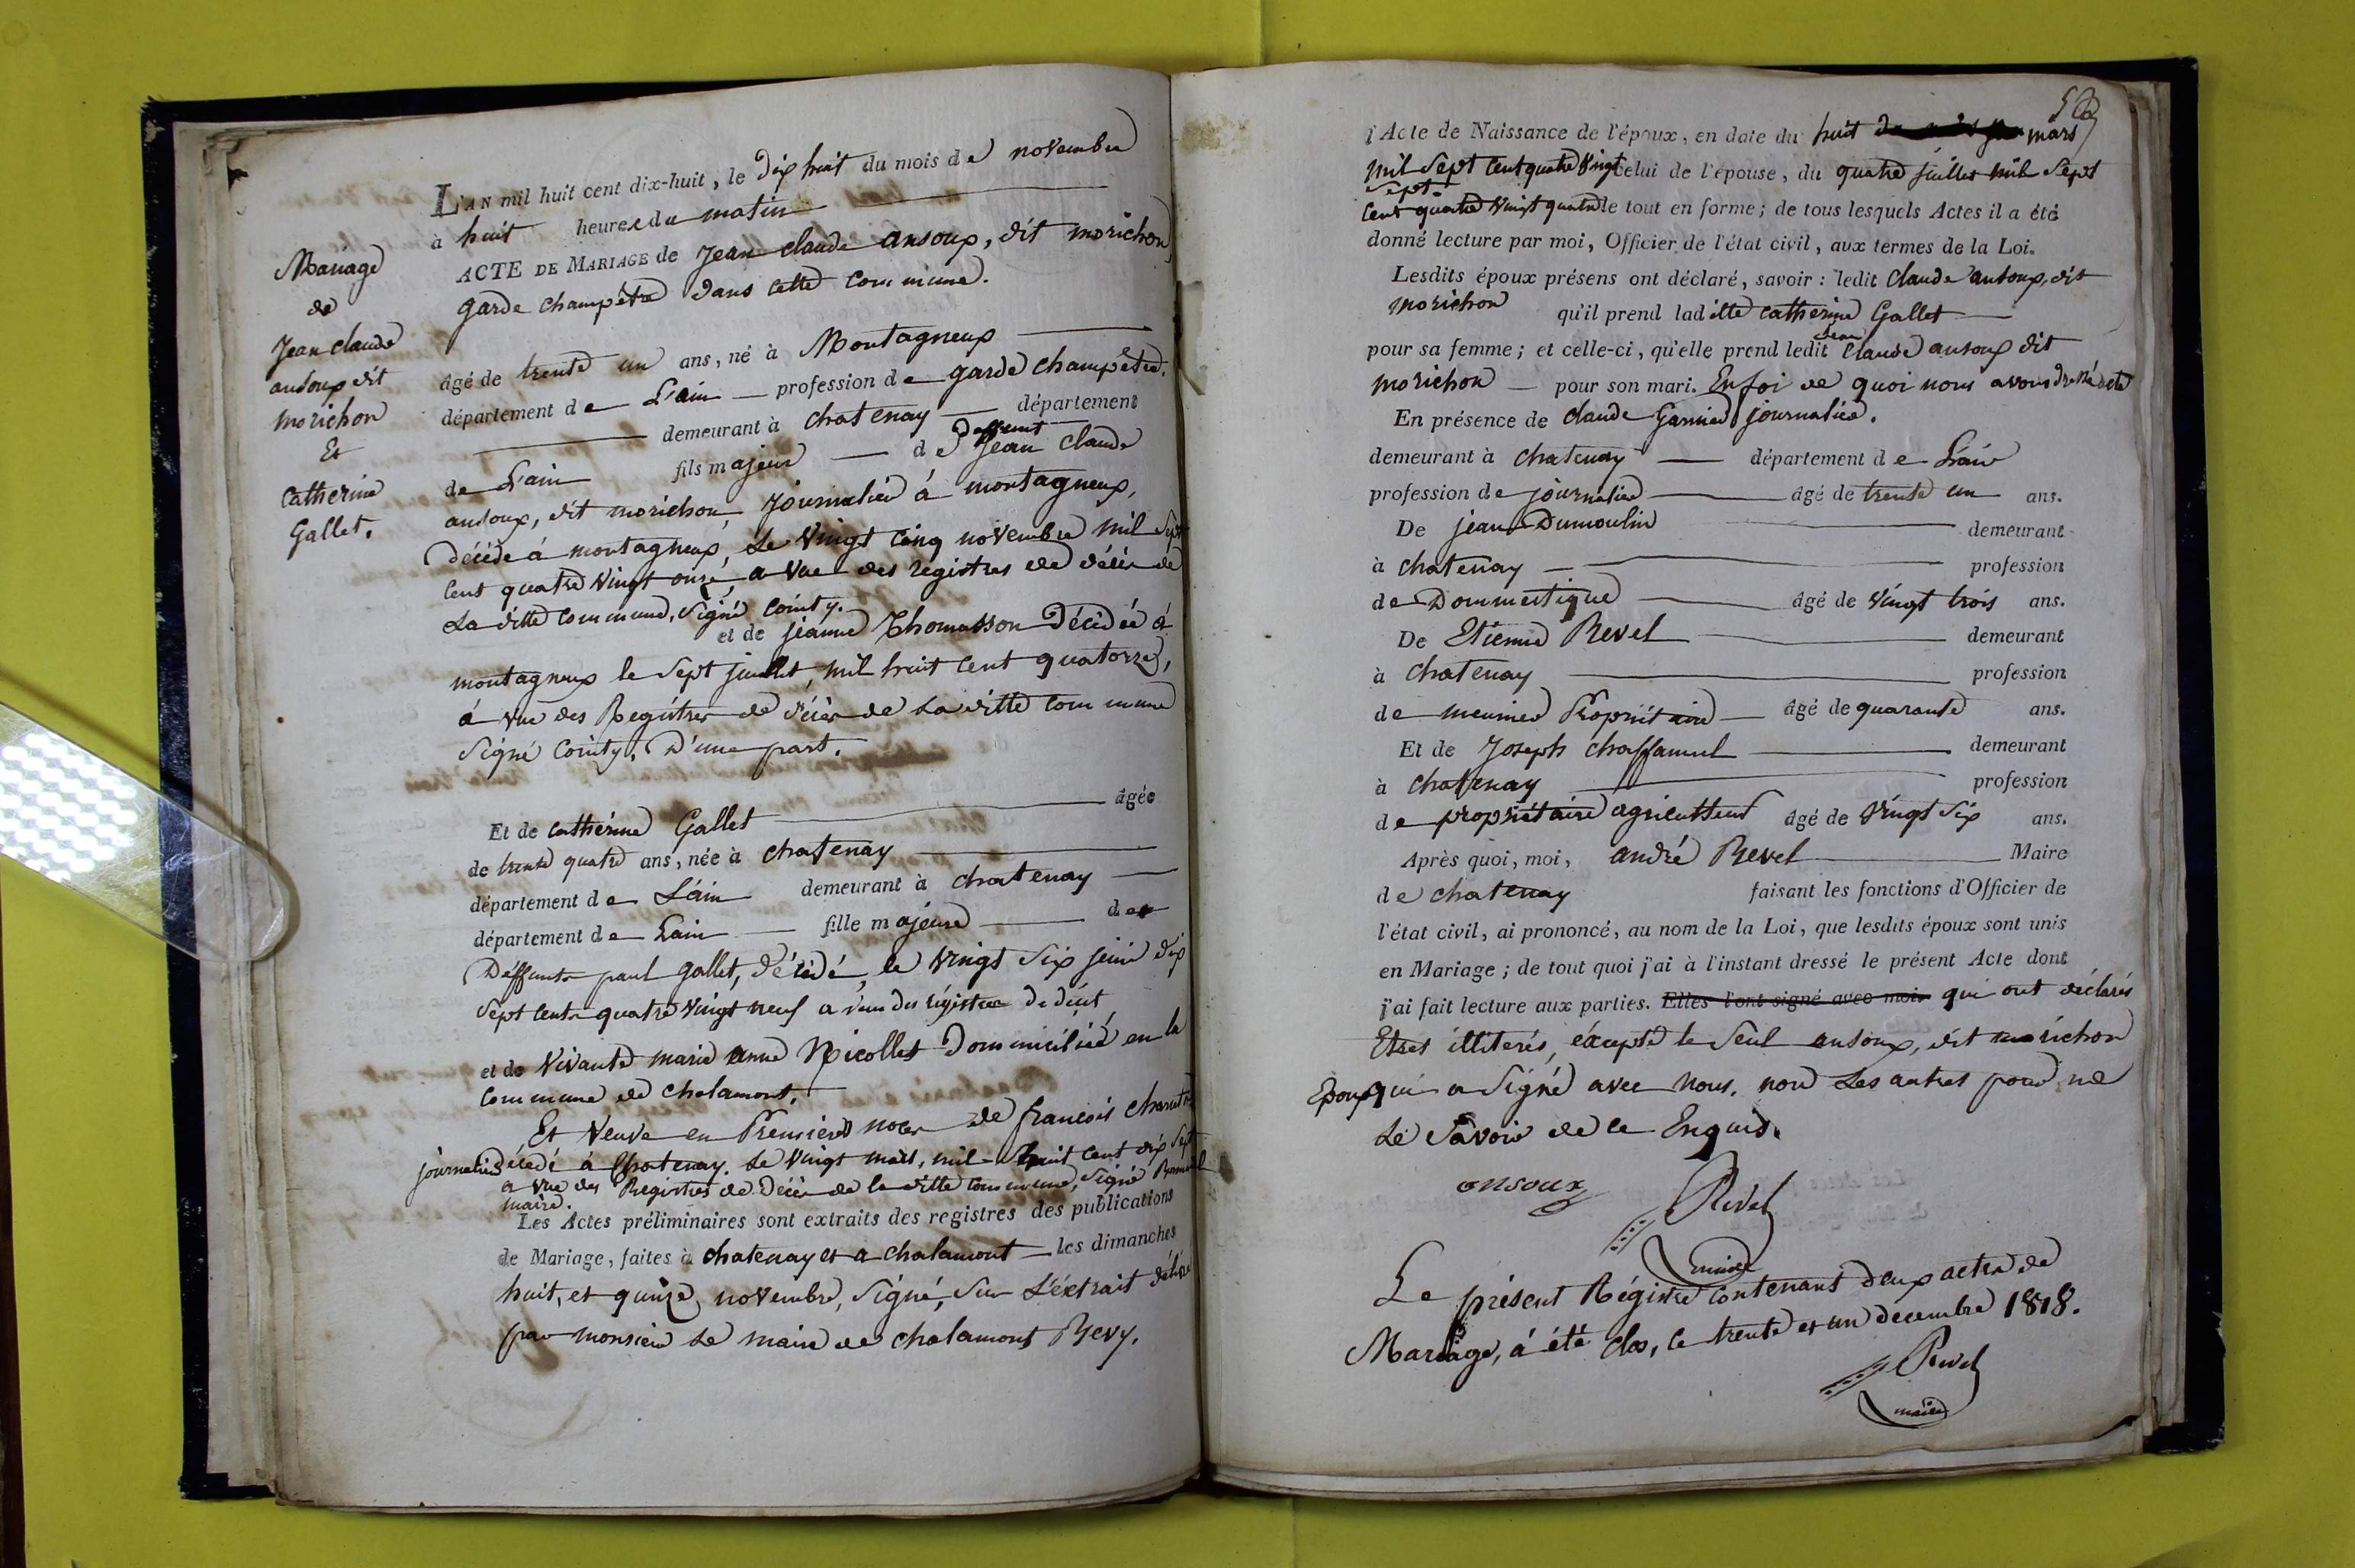 Mariage
de
Jean claude
ansoux dit
morichon
Et
Catherine
Gallet.
L'AN mil huit cent dix-huit, le dix huit du mois de novembre
à huit heures du matin
ACTE DE MARIAGE de Jean claude ansoux, dit morichon
garde champêtre dans cette commune.
âgé de trente un ans, né à Montagneux
département de L'ain profession de garde champêtre.
demeurant à chatenay département
de L'ain fils majeur de Deffunt Jean Claude
ansoux, dit morichon, journalier à montagneux,
décédé à montagneux, le vingt cinq novembre mil sept
cent quatre vingt onze, a vue des registres de décès de
La ditte commune, signé Cointy.
et de jeanne Thomasson Décédée à
montagneux le sept juillet, mil huit cent quatorze,
à vue des Registres de décès de La ditte commune
signé Cointy. D'une part.
Et de catherine Gallet âgée
de trente quatre ans, née à chatenay
département de L'ain demeurant à chatenay
département de Lain fille majeure de
Deffunts paul gallet, décédé, le vingt six juin dix
sept cents quatre vingt neuf a vue des régistres de
et de vivante marie anne Nicollet Dommiciliée en la
commune de chalamont.
Et veuve en Premieres noces de francois
journalier décédé à Chatenay. Le vingt mars, mil huit cent dix sept
a vue des Registres de Décès de la ditte commune, signé
maire.
Les Actes préliminaires sont extraits des registres des publications
de Mariage, faites à chatenay et a chalamont les dimanches
huit, et quinze, novembre, signé, sur L'éxtrait délivré
par monsieur Le maire de chalamont Revy.
l'Acte de Naissance de l'époux, en date du huit mars
mil sept cent quatre vingt celui de l'épouse, du quatre juillet mil sept
sept.
cent quatre vingt quatre le tout en forme; de tous lesquels Actes il a été
donné lecture par moi, Officier de l'état civil, aux termes de la Loi.
Lesdits époux présens ont déclaré, savoir : ledit Claude ansoux, dit
morichon qu'il prend laditte catherine Gallet
Jean
pour sa femme; et celle-ci, qu'elle prend ledit Claude ansoux dit
morichon pour son mari. En foi de quoi nous avons dressé acte
En présence de claude Garnier journalier.
demeurant à chatenay département de L'ain
profession de journalier âgé de trente un ans.
De jean Dumoulin demeurant
à chatenay profession
de Dommestique âgé de vingt trois ans.
De Etienne Revel demeurant
à Chatenay profession
de meunier Propriétaire âgé de quarante ans.
Et de Joseph demeurant
à chatenay profession
de propriétaire agriculteur âgé de vingt six ans.
Après quoi, moi, andré Revel Maire
de chatenay faisant les fonctions d'Officier de
l'état civil, ai prononcé, au nom de la Loi, que lesdits époux sont unis
en Mariage; de tout quoi j'ai à l'instant dressé le présent Acte dont
j'ai fait lecture aux parties. Elles l'ont signé avec moi qui ont déclarés
Etres illiterés, éxcepté le seul ansoux, dit morichon
Epoux qui a signé avec nous. non Les autres pour ne
Le savoir de ce Enquis.
onsoux
Revel
maire
Le présent Régistre contenant deux actes de
Mariage, à été clos, le trente et un decembre 1818.
Revel
maire